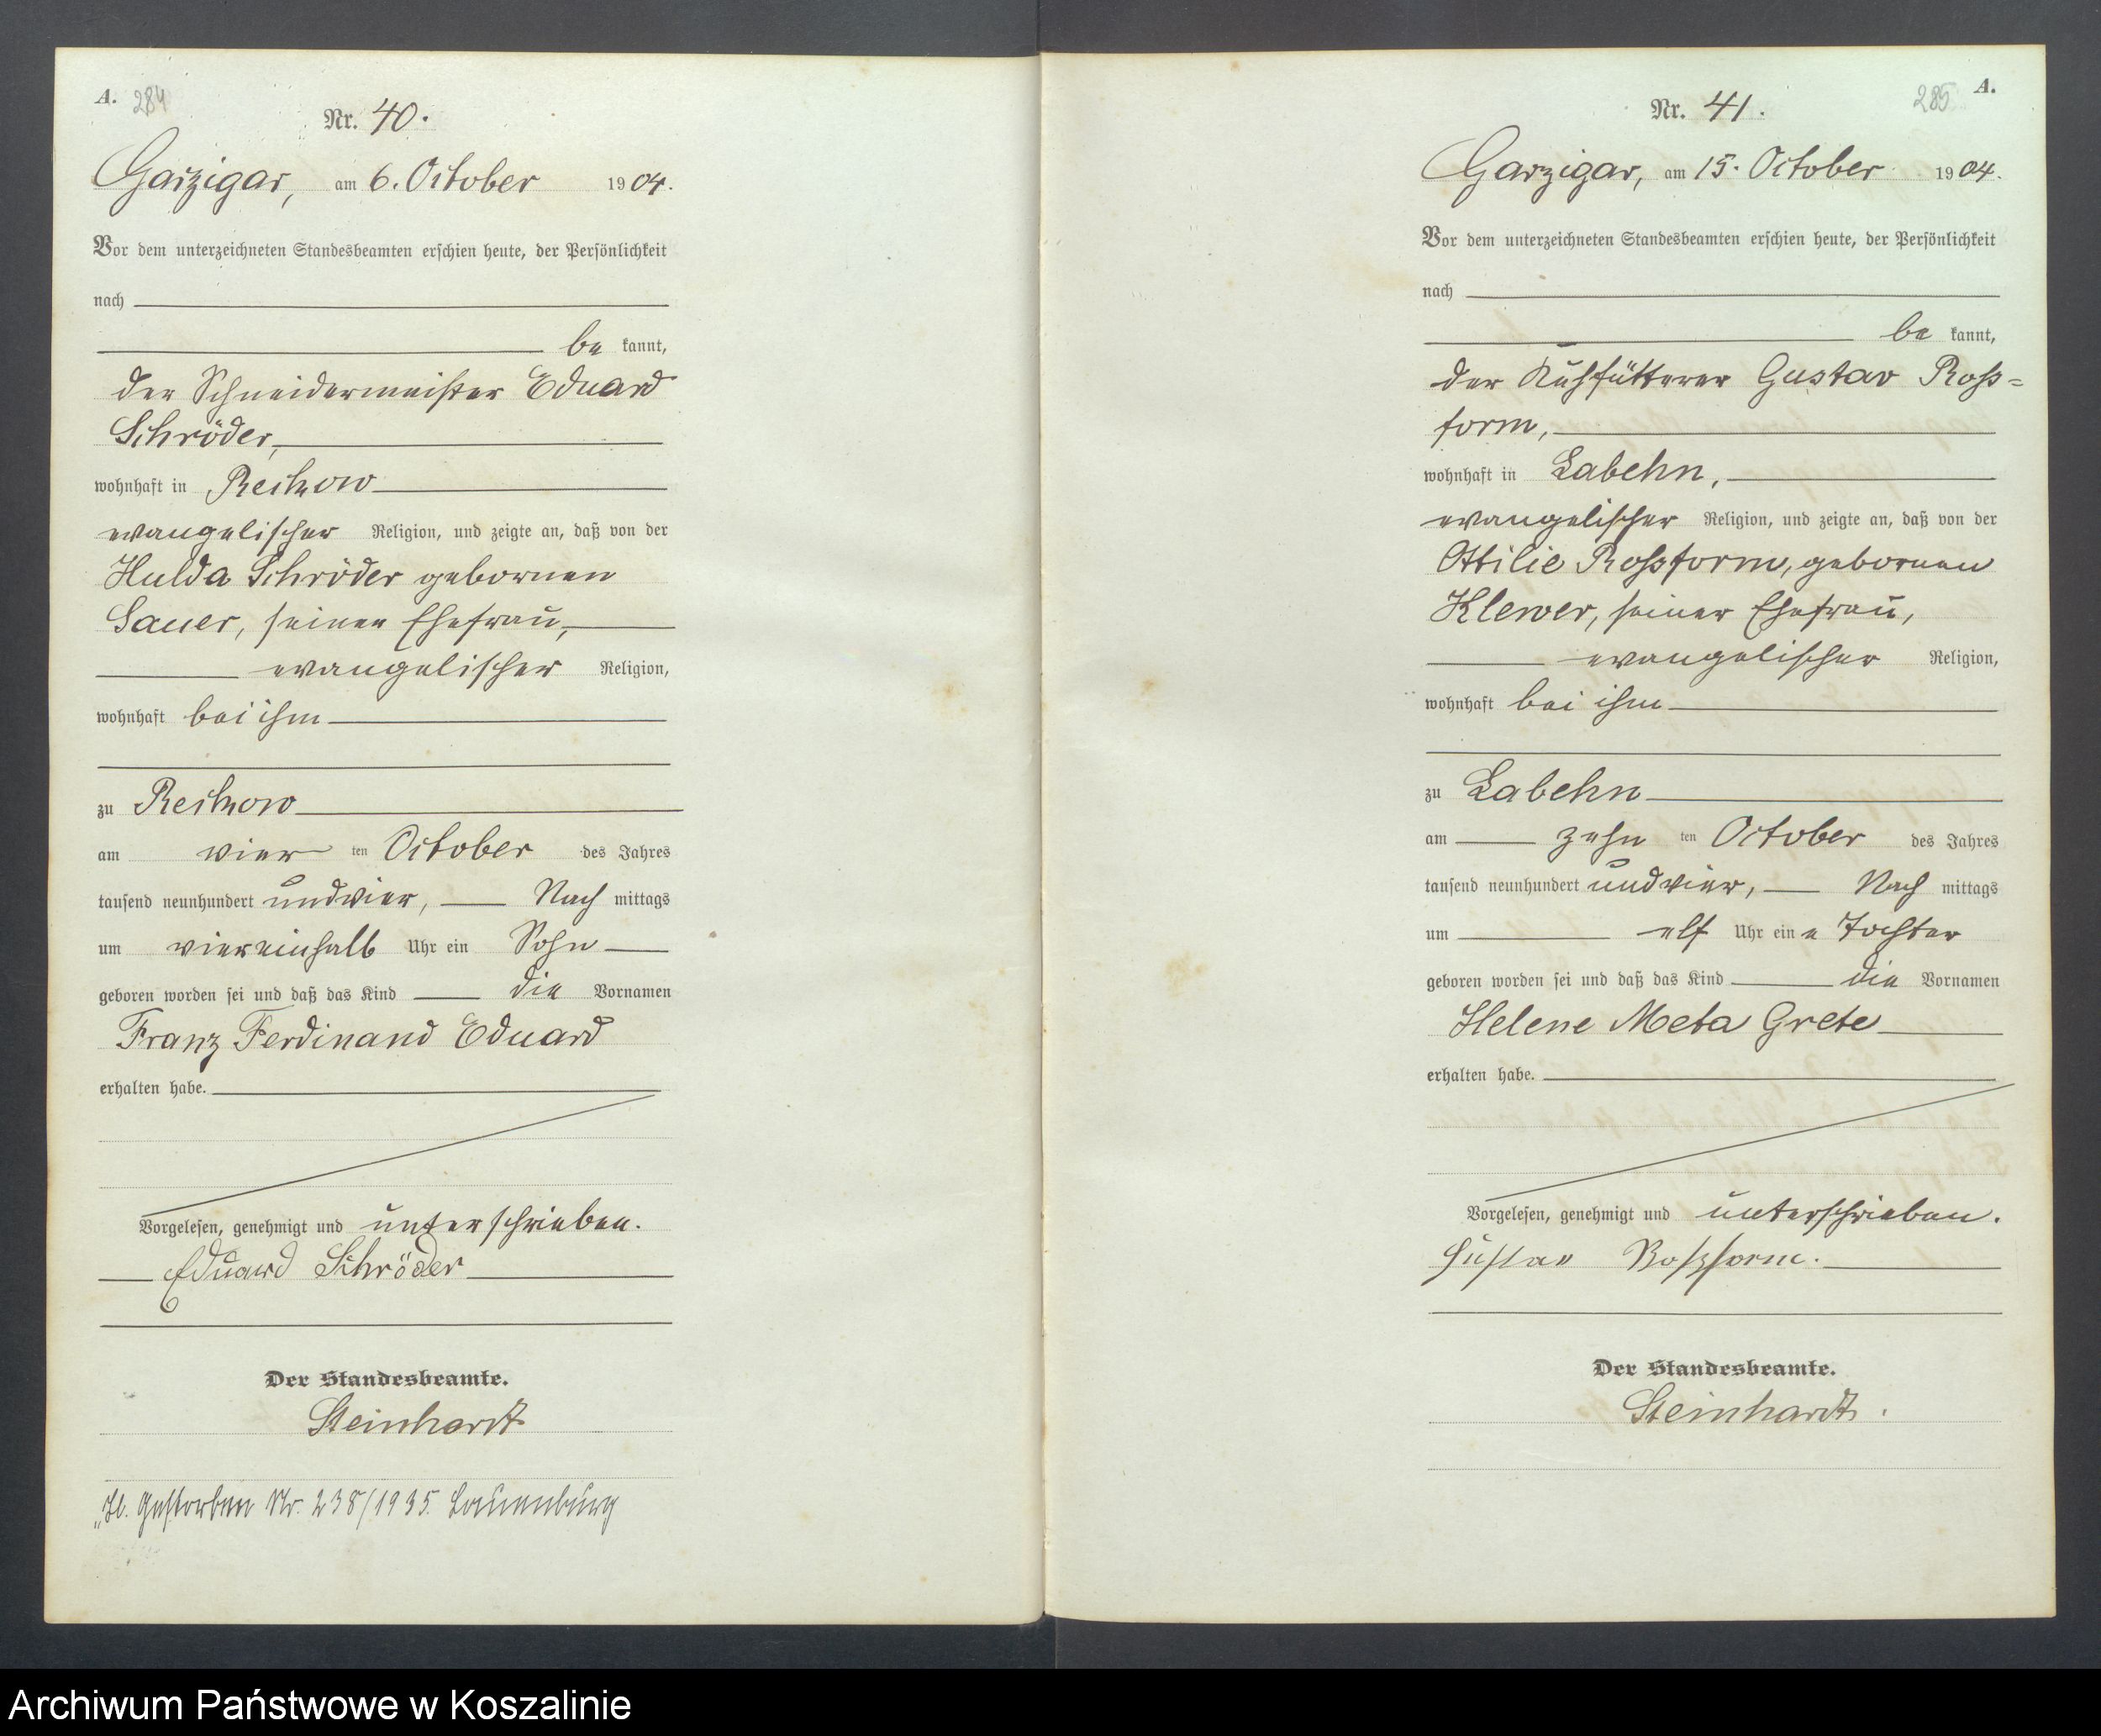 A. 284
Nr. 40.
Garzigar, am 6. October 1904.
Vor dem unterzeichneten Standesbeamten erschien heute, der Persönlichkeit
nach
be kannt,
der Schneidermeister Eduard
Schröder,
wohnhaft in Reckow
evangelischer Religion, und zeigte an, daß von der
Hulda Schröder gebornen
Sauer, seiner Ehefrau,
evangelischer Religion,
wohnhaft bei ihm
zu Reckow
am vier ten October des Jahres
tausend neunhundert und vier, Nach mittags
um viereinhalb Uhr ein Sohn
geboren worden sei und daß das Kind die Vornamen
Franz Ferdinand Eduard
erhalten habe.
Vorgelesen, genehmigt und unterschrieben.
Eduard Schröder
Der Standesbeamte.
Steinhardt
Gestorben Nr. 238/1935. Lauenburg
285 A.
Nr. 41.
Garzigar, am 15. October 1904.
Vor dem unterzeichneten Standesbeamten erschien heute, der Persönlichkeit
nach
be kannt,
der Kuhfütterer Gustav Ross=
form,
wohnhaft in Labehn,
evangelischer Religion, und zeigte an, daß von der
Ottilie Rossform, gebornen
Klewer, seiner Ehefrau,
evangelischer Religion,
wohnhaft bei ihm
zu Labehn
am zehn ten October des Jahres
tausend neunhundert und vier, Nach mittags
um elf Uhr ein e Tochter
geboren worden sei und daß das Kind die Vornamen
Helene Meta Grete
erhalten habe.
Vorgelesen, genehmigt und unterschrieben.
Gustav Rossform.
Der Standesbeamte.
Steinhardt.
Archiwum Państwowe w Koszalinie